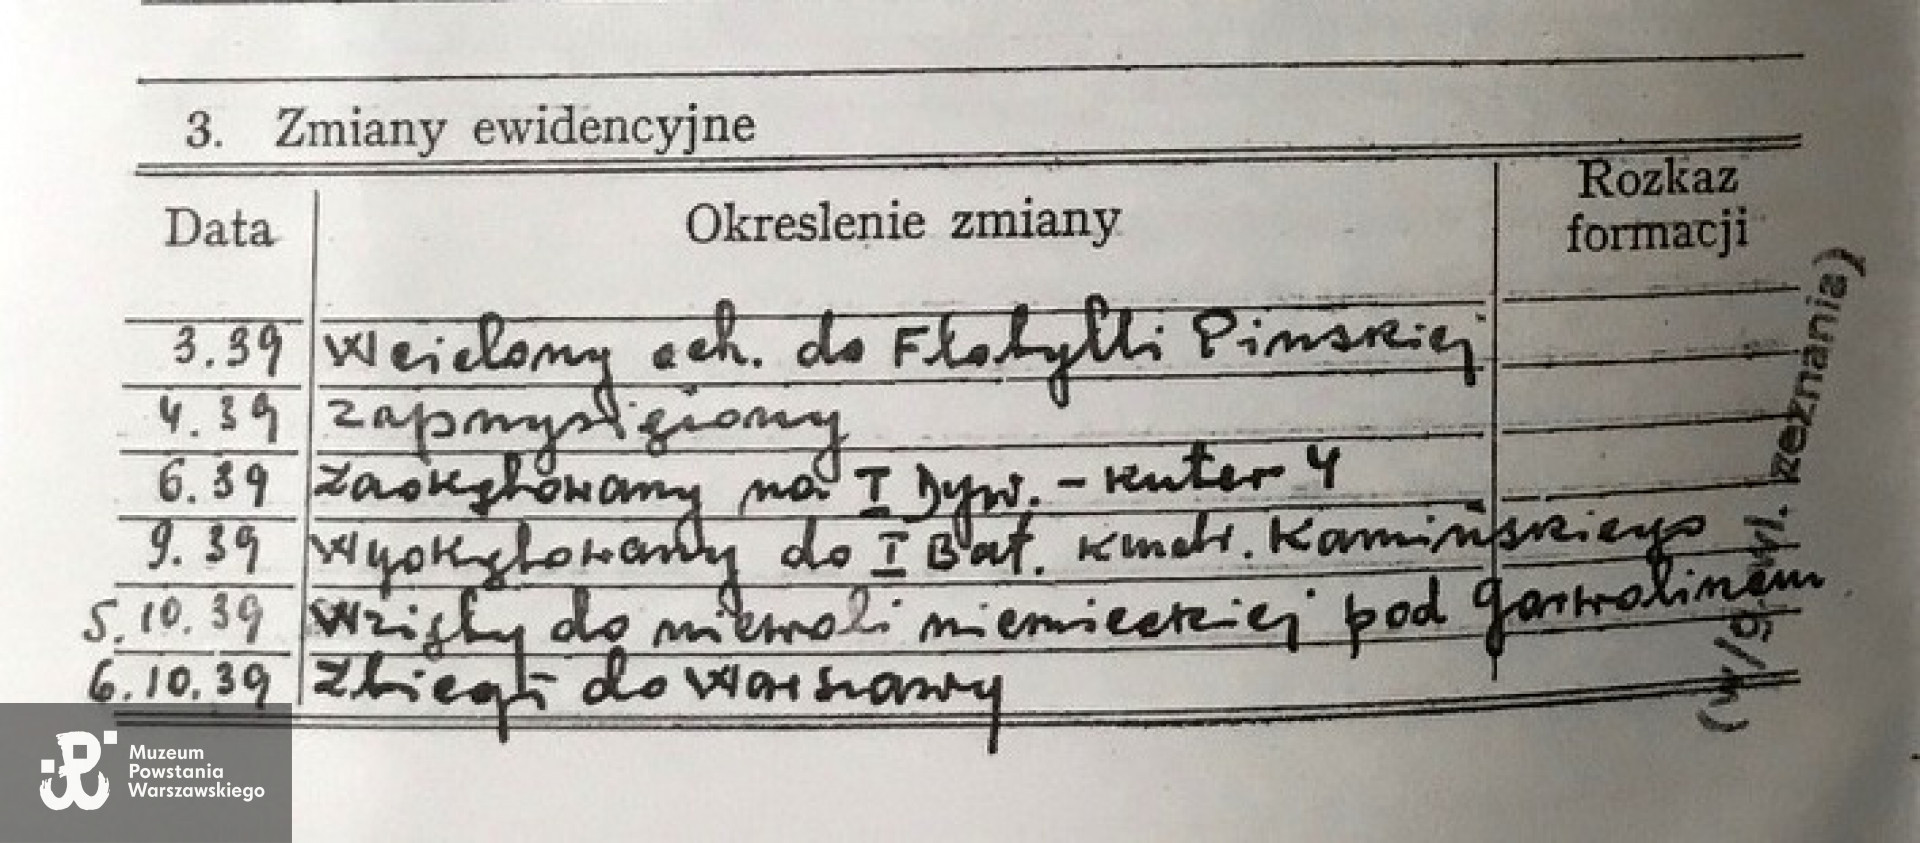 3. Zmiany ewidencyjne
Data
Okreslenie zmiany
Rozkaz
formacji
3.39 Wcielony och. do Flotylli Pinskiej
4.39 zaprzysiężony
6.39 Zaokrętowany na I Dyw. - kuter 4
9.39 Wyokrętowany do I Bat. kmdr. Kamińskiego
5.10.39 Wzięty do niewoli niemieckiej pod Garwolinem
6.10.39 Zbiegł do Warszawy
(w/g. wł. zeznania)
Muzeum
Powstania
Warszawskiego